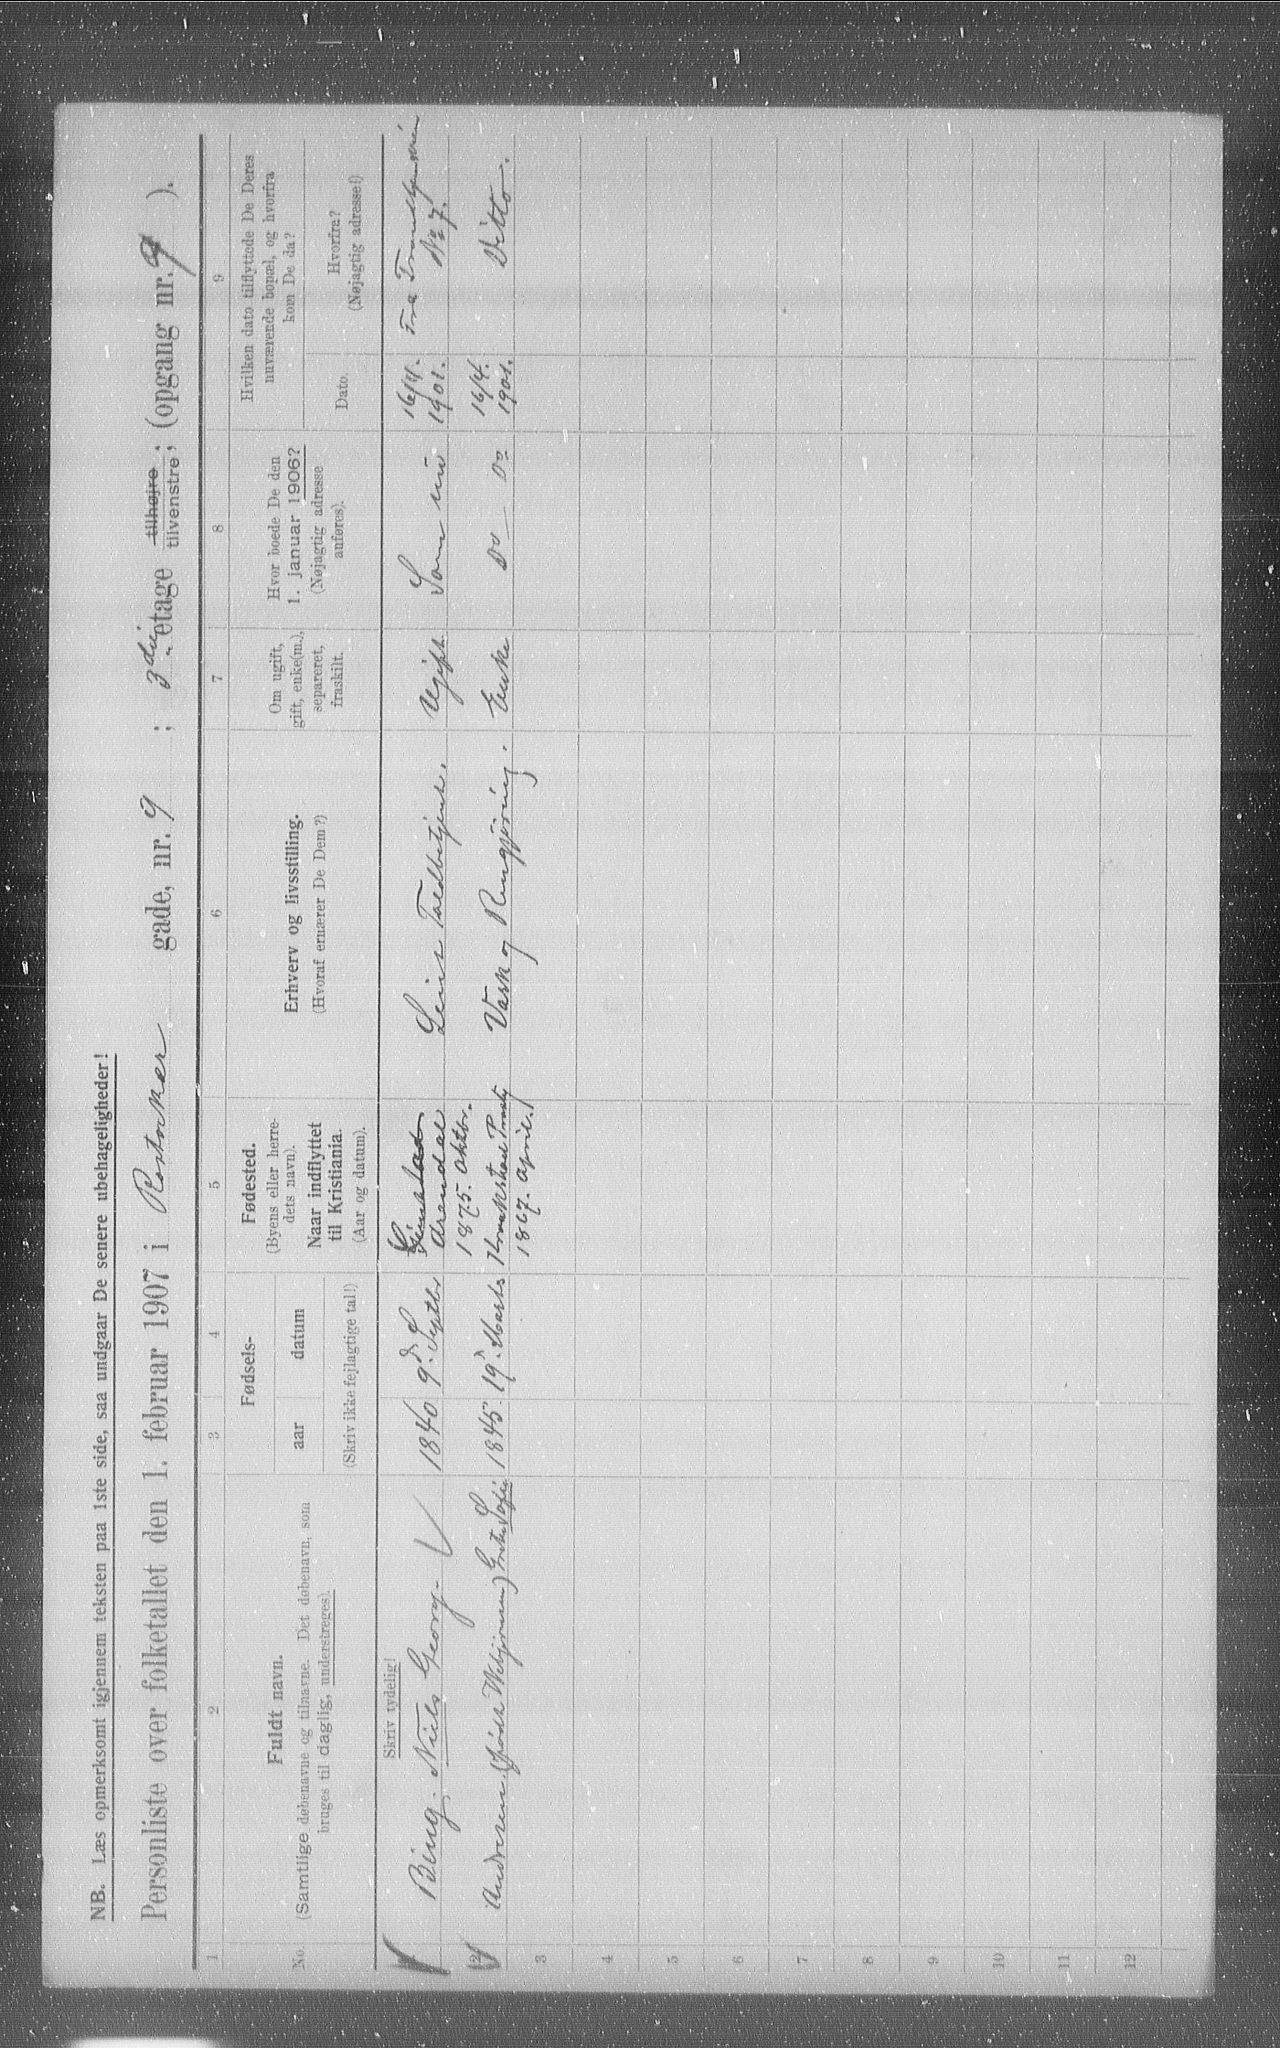 NB. Læs opmerksomt igjennem teksten paa 1ste side, saa undgaar De senere ubehageligheder!
Personliste over folketallet den 1. februar 1907 i Rostocker gade, nr. 9 ; 3die etage tilhøjre tilvenstre; (opgang nr. 9 ).
1 2 3 4 5 6 7 8 9
No.
Fuldt navn.
(Samtlige døbenavne og tilnavne. Det døbenavn, som
bruges til daglig, understreges).
Fødsels-
aar datum
(Skriv ikke fejlagtige tal!)
Fødested.
(Byens eller herre-
dets navn).
Naar indflyttet
til Kristiania.
(Aar og datum).
Erhverv og livsstilling.
(Hvoraf ernærer De Dem?)
Om ugift,
gift, enke(m.),
separeret,
fraskilt.
Hvor boede De den
1. januar 1906?
(Nøjagtig adresse
anføres).
Hvilken dato tilflyttede De Deres
nuværende bopæl, og hvorfra
kom De da?
Dato.
Hvorfra?
(Nøjagtig adresse!)
Skriv tydelig!
Bing. Niels Georg. 1840 9d Septbr
Arendal
1875. Oktbr.
Toldbetjent. Ugift Som nu 16/4. 1901. Fra
No 7.
2 Andresen (født ) Sofie 1845. 19d Marts
1867. April.
Vask og Rengjøring. Enke Do Do 16/4. 1901. Ditto.
3
4
5
6
7
8
9
10
11
12